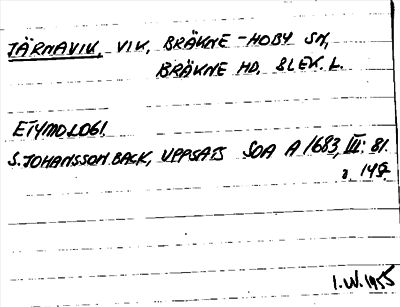 JÄRNAVIK, VIK, BRÄKNE-HOBY SN,
BRÄKNE HD, BLEK. L.
ETYMOLOGI.
S. JOHANSSON BACK, UPPSATS SOA A 1683, III: 81.
s. 149.
I.W. 1955